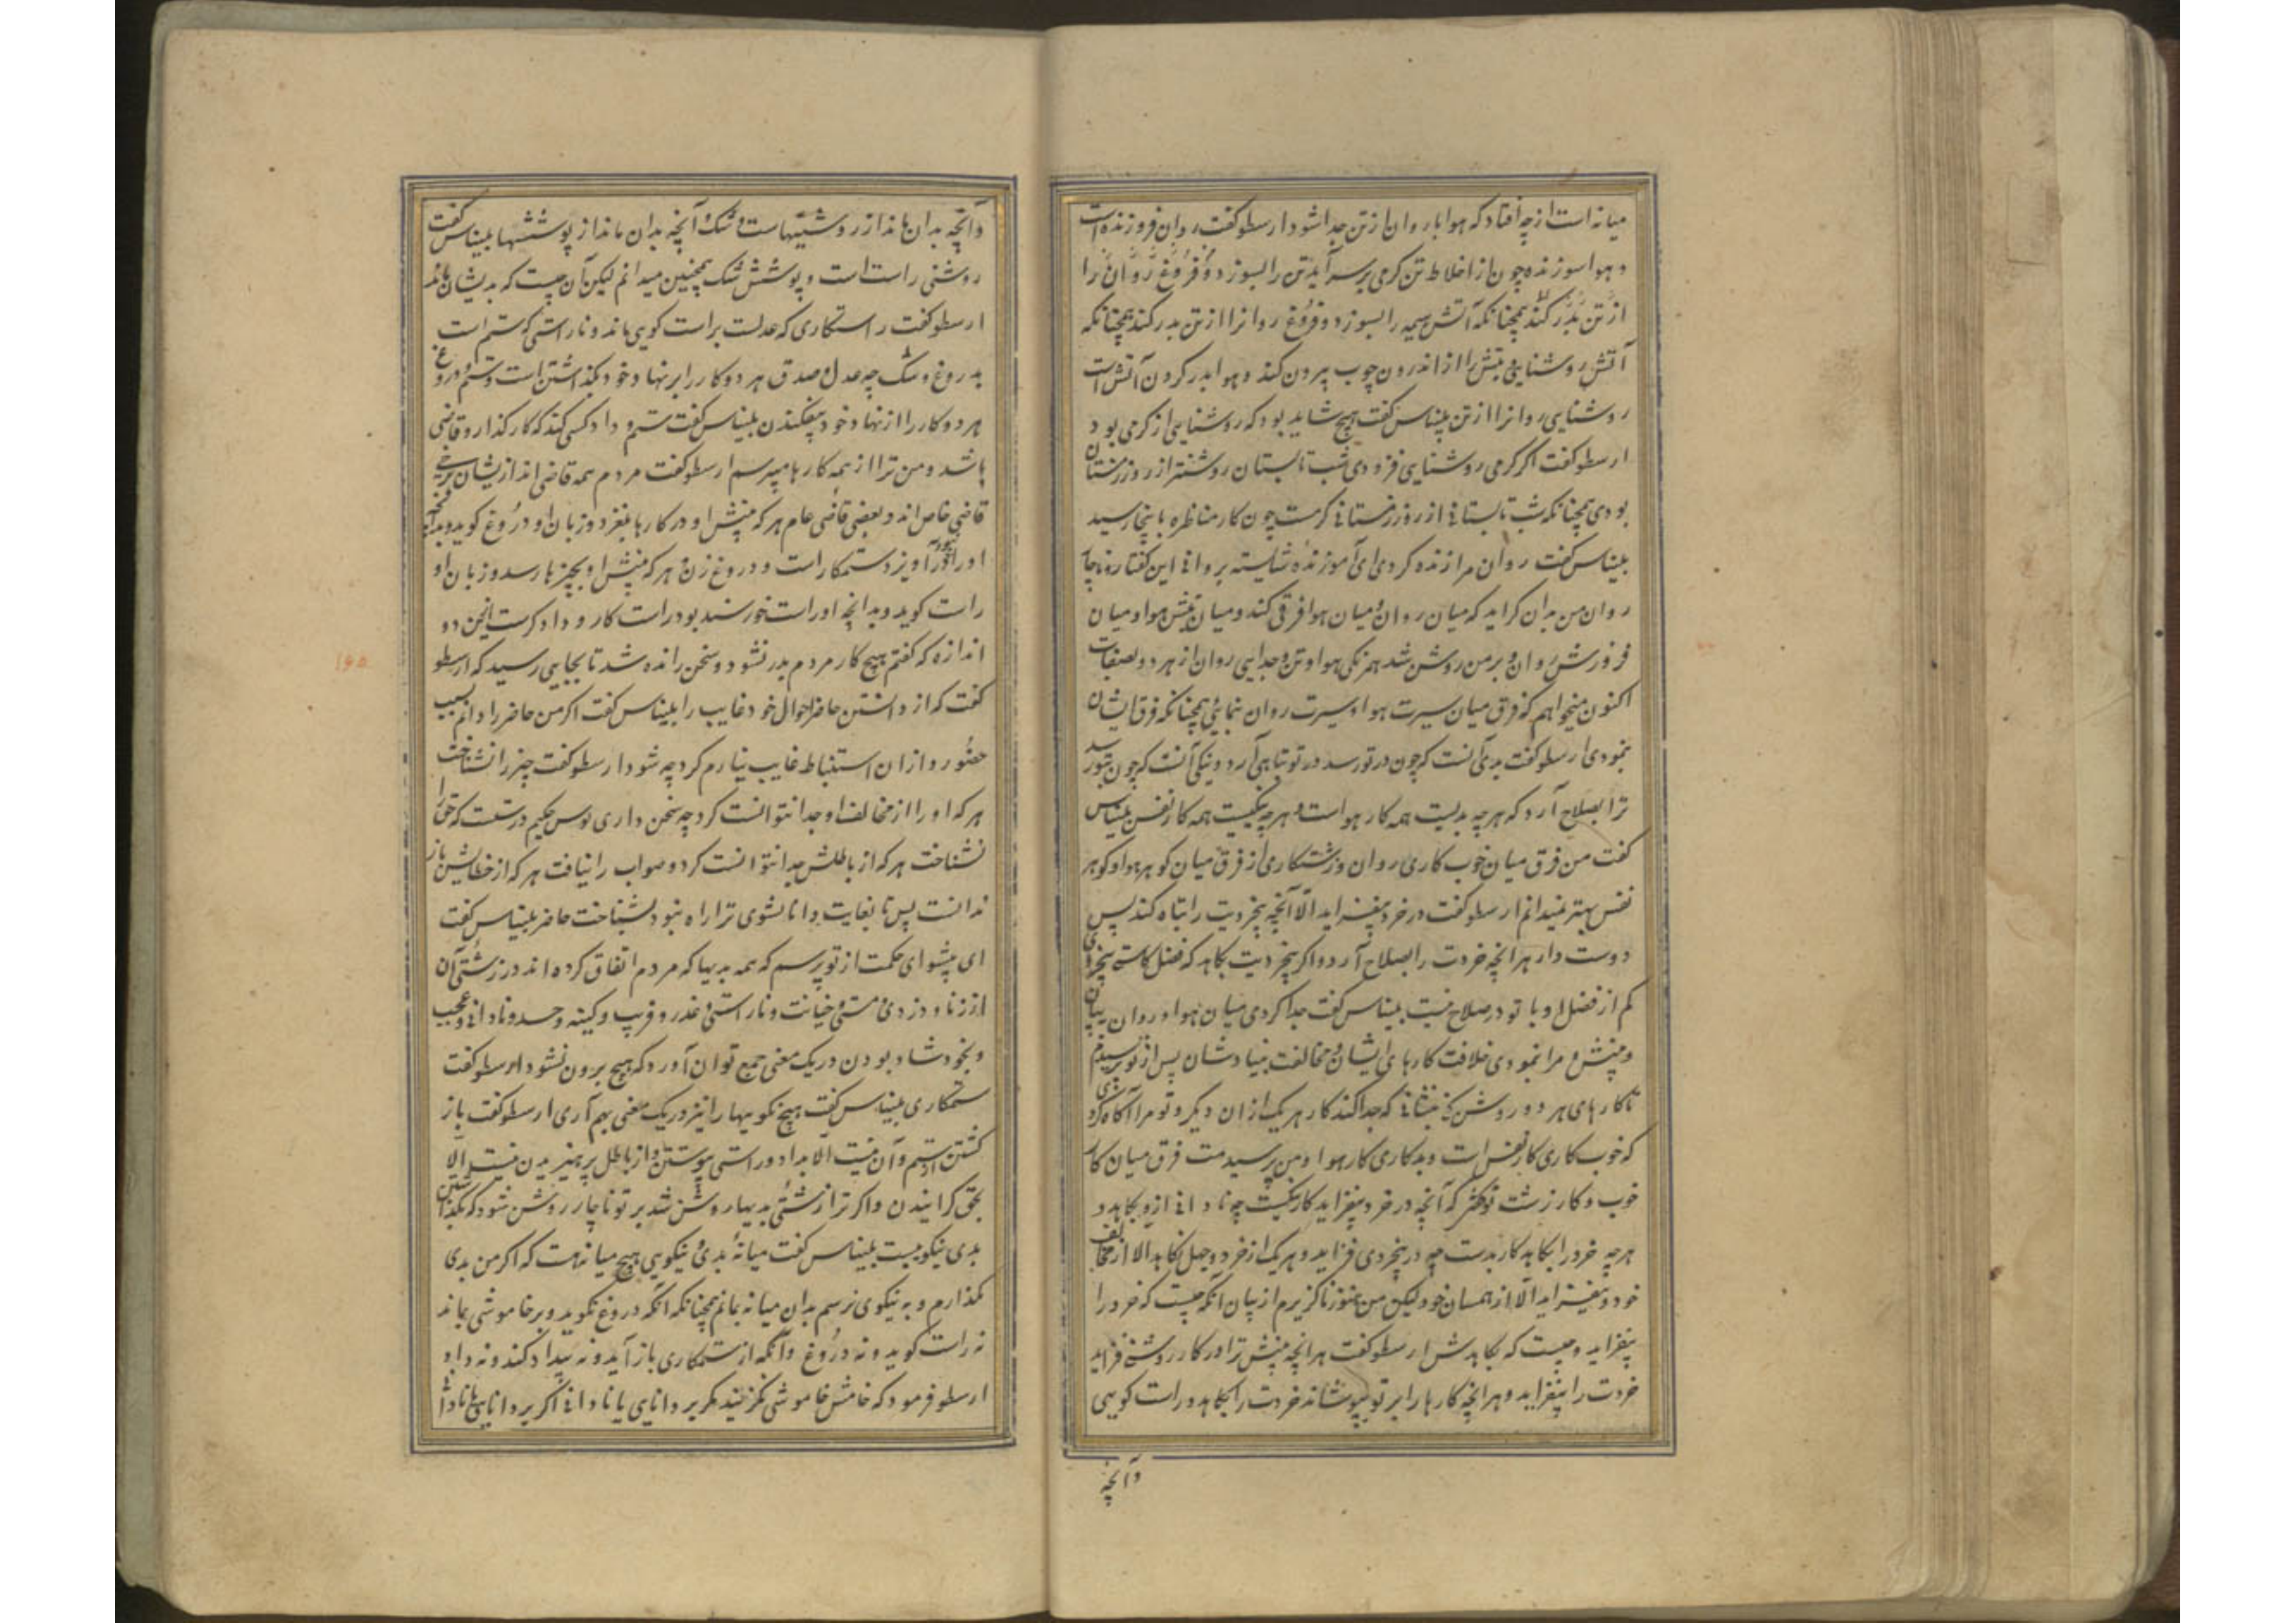 میانه است از چه افتاد که هوا با روان از تن جدا شود ارسطو گفت روان فروزنده است
و هوا سوزنده چون از اخلاط تن گرمی بر سر آید تن را بسوزد و فروغ روان را
از تن بدر کند همچنانکه آتش هیمه را بسوزد و فروغ روانرا از تن بدر کند همچنانکه
آتش روشنایی و تبش را از اندرون چوب بیرون کند و هوا بدر کردن آتش است
روشنایی روانرا از تن بلیناس گفت هیچ شاید بود که روشنایی از گرمی بود
ارسطو گفت اگر گرمی روشنایی فزودی شب تابستان روشنتر از روز زمستان
بودی همچنانکه شب تابستانی از روز زمستانی گرمست چون کار مناظره باینجا رسید
بلیناس گفت روان مرا زنده کردی ای آموزنده شایسته بروانی این گفتار ناچار
روان من بدان گراید که میان روان و میان هوا فرقی کند و میان تبش هوا و میان
فروزش روان و بر من روشن شد همرنگی هوا و تن و جدایی روان از هر دو بصفات
اکنون میخواهم که فرق میان سیرت هوا و سیرت روان بنمایی همچنانکه فرق ایشان
بنمودی ارسطو گفت بدی آنست که چون در تو رسد در تو تباهی آرد و نیکی آنست که چون بتو رسد
ترا بصلاح آرد که هر چه بدیست همه کار هواست و هر چه نیکیست همه کار نفس بلیناس
گفت من فرق میان خوب کاری روان و زشتکاری از فرق میان گوهر هوا و گوهر
نفس بهتر نمیدانم ارسطو گفت در خرد نیفزاید الا آنچه بیخردیت را تباه کند پس
دوست دار هر انچه خردت را بصلاح آرد و اگر بیخردیت بکاهد که فضل کاستی بیخردی
کم از فضل او با تو در صلاح نیست بلیناس گفت جدا کردی میان هوا و روان ببیان
و منش و مرا نمودی خلافت کارهای ایشان و مخالفت بنیادشان پس از تو پرسیدم
تا کارهای هر دو روشن کنی بنشانی که جدا کند کار هر یک از ان دیگر و تو مرا آگاه کردی
که خوب کاری کار نفس است و بدکاری کار هوا و من پرسیدمت فرق میان کار
خوب و کار زشت تو گفتی که آنچه در خرد بیفزاید کار نیکیست چو نادانی ازو بکاهد و
هر چه خرد را بکاهد کار بدست چه در بیخردی فزاید و هر یک از خرد و جهل نکاهد الا از مخالف
خود و نیفزاید الا از همسان خود و لیکن من هنوز ناگزیرم از بیان آنکه چیست که خرد را
بیفزاید و چیست که بکاهدش ارسطو گفت هر انچه بینش ترا در کار روشنی فزاید
خردت را بیفزاید و هر انچه کارها را بر تو بپوشاند خردت را بکاهد و راست گویی
و آنچه
و آنچه بدان ماند از روشنیهاست و شک و آنچه بدان ماند از پوششها بلیناس گفت
روشنی راست است و پوشش شک همچنین میدانم لیکن آن چیست که بدیشان ماند
ارسطو گفت راستکاری که عدلست براست گویی ماند و ناراستی که ستم است
بدروغ و شک چه عدل و صدق هر دو کار را بر نهاد خود بگذاشتن است و ستم و دروغ
هر دو کار را از نهاد خود بیفکندن بلیناس گفت ستم و داد کسی کند که کارگذار و قاضی
باشد و من ترا از همه کارها میپرسم ارسطو گفت مردم همه قاضی اند ازیشان برخی
قاضی خاص اند و بعضی قاضی عام هر که بینش او در کارها بلغزد و زبان او دروغ گوید و بدانچه
او را نبود آویزد ستمکار است و دروغ زن و هر که بینش او بچیزها رسد و زبان او
راست گوید و بدانچه او راست خورسند بود راست کار و دادگرست ازین دو
اندازه که گفتم هیچ کار مردم بدر نشود و سخن رانده شد تا بجایی رسید که ارسطو
گفت که از داشتن حاضر احوال خود غایب را بلیناس گفت اگر من حاضر را دانم بسبب
حضور و از ان استنباط غایب نیارم کرد چه شود ارسطو گفت چیز را نشناخت
هر که او را از مخالف او جدا نتوانست کرد چه سخن داری نوس حکیم درستست که حق را
نشناخت هر که از باطلش جدا نتوانست کرد و صواب را نیافت هر که از خطایش باز
ندانست پس تا بغایت دانا نشوی ترا راه نبود بشناخت حاضر بلیناس گفت
ای پیشوای حکمت از تو پرسم که همه بدیها که مردم اتفاق کرده اند در زشتی آن
از زنا و دزدی و مستی و خیانت و ناراستی و غدر و فریب و کینه و حسد و نادانی و عجب
و بخود شاد بودن در یک معنی جمع توان آورد که هیچ برون نشود ارسطو گفت
ستمکاری بلیناس گفت هیچ نکوییها را نیز در یک معنی بهم آری ارسطو گفت باز
گشتن از ستم و آن نیست الا بداد و راستی پیوستن و از باطل پرهیزیدن نیست الا
بحق گراییدن و اگر ترا زشتی بدیها روشن شد بر تو ناچار روشن شود که بگذاشتن
بدی نیکوییست بلیناس گفت میانه بدی و نیکویی هیچ میانه هست که اگر من بدی
بگذارم و به نیکوی نرسم بدان میانه بمانم همچنانکه آنکه دروغ نگوید و بر خاموشی بماند
نه راست گوید و نه دروغ و آنکه از ستمکاری باز آید و نه بیداد کند و نه داد
ارسطو فرمود که خامش خاموشی نگزیند مگر بر دانایی یا نادانی اگر بر دانایی یا نادانی